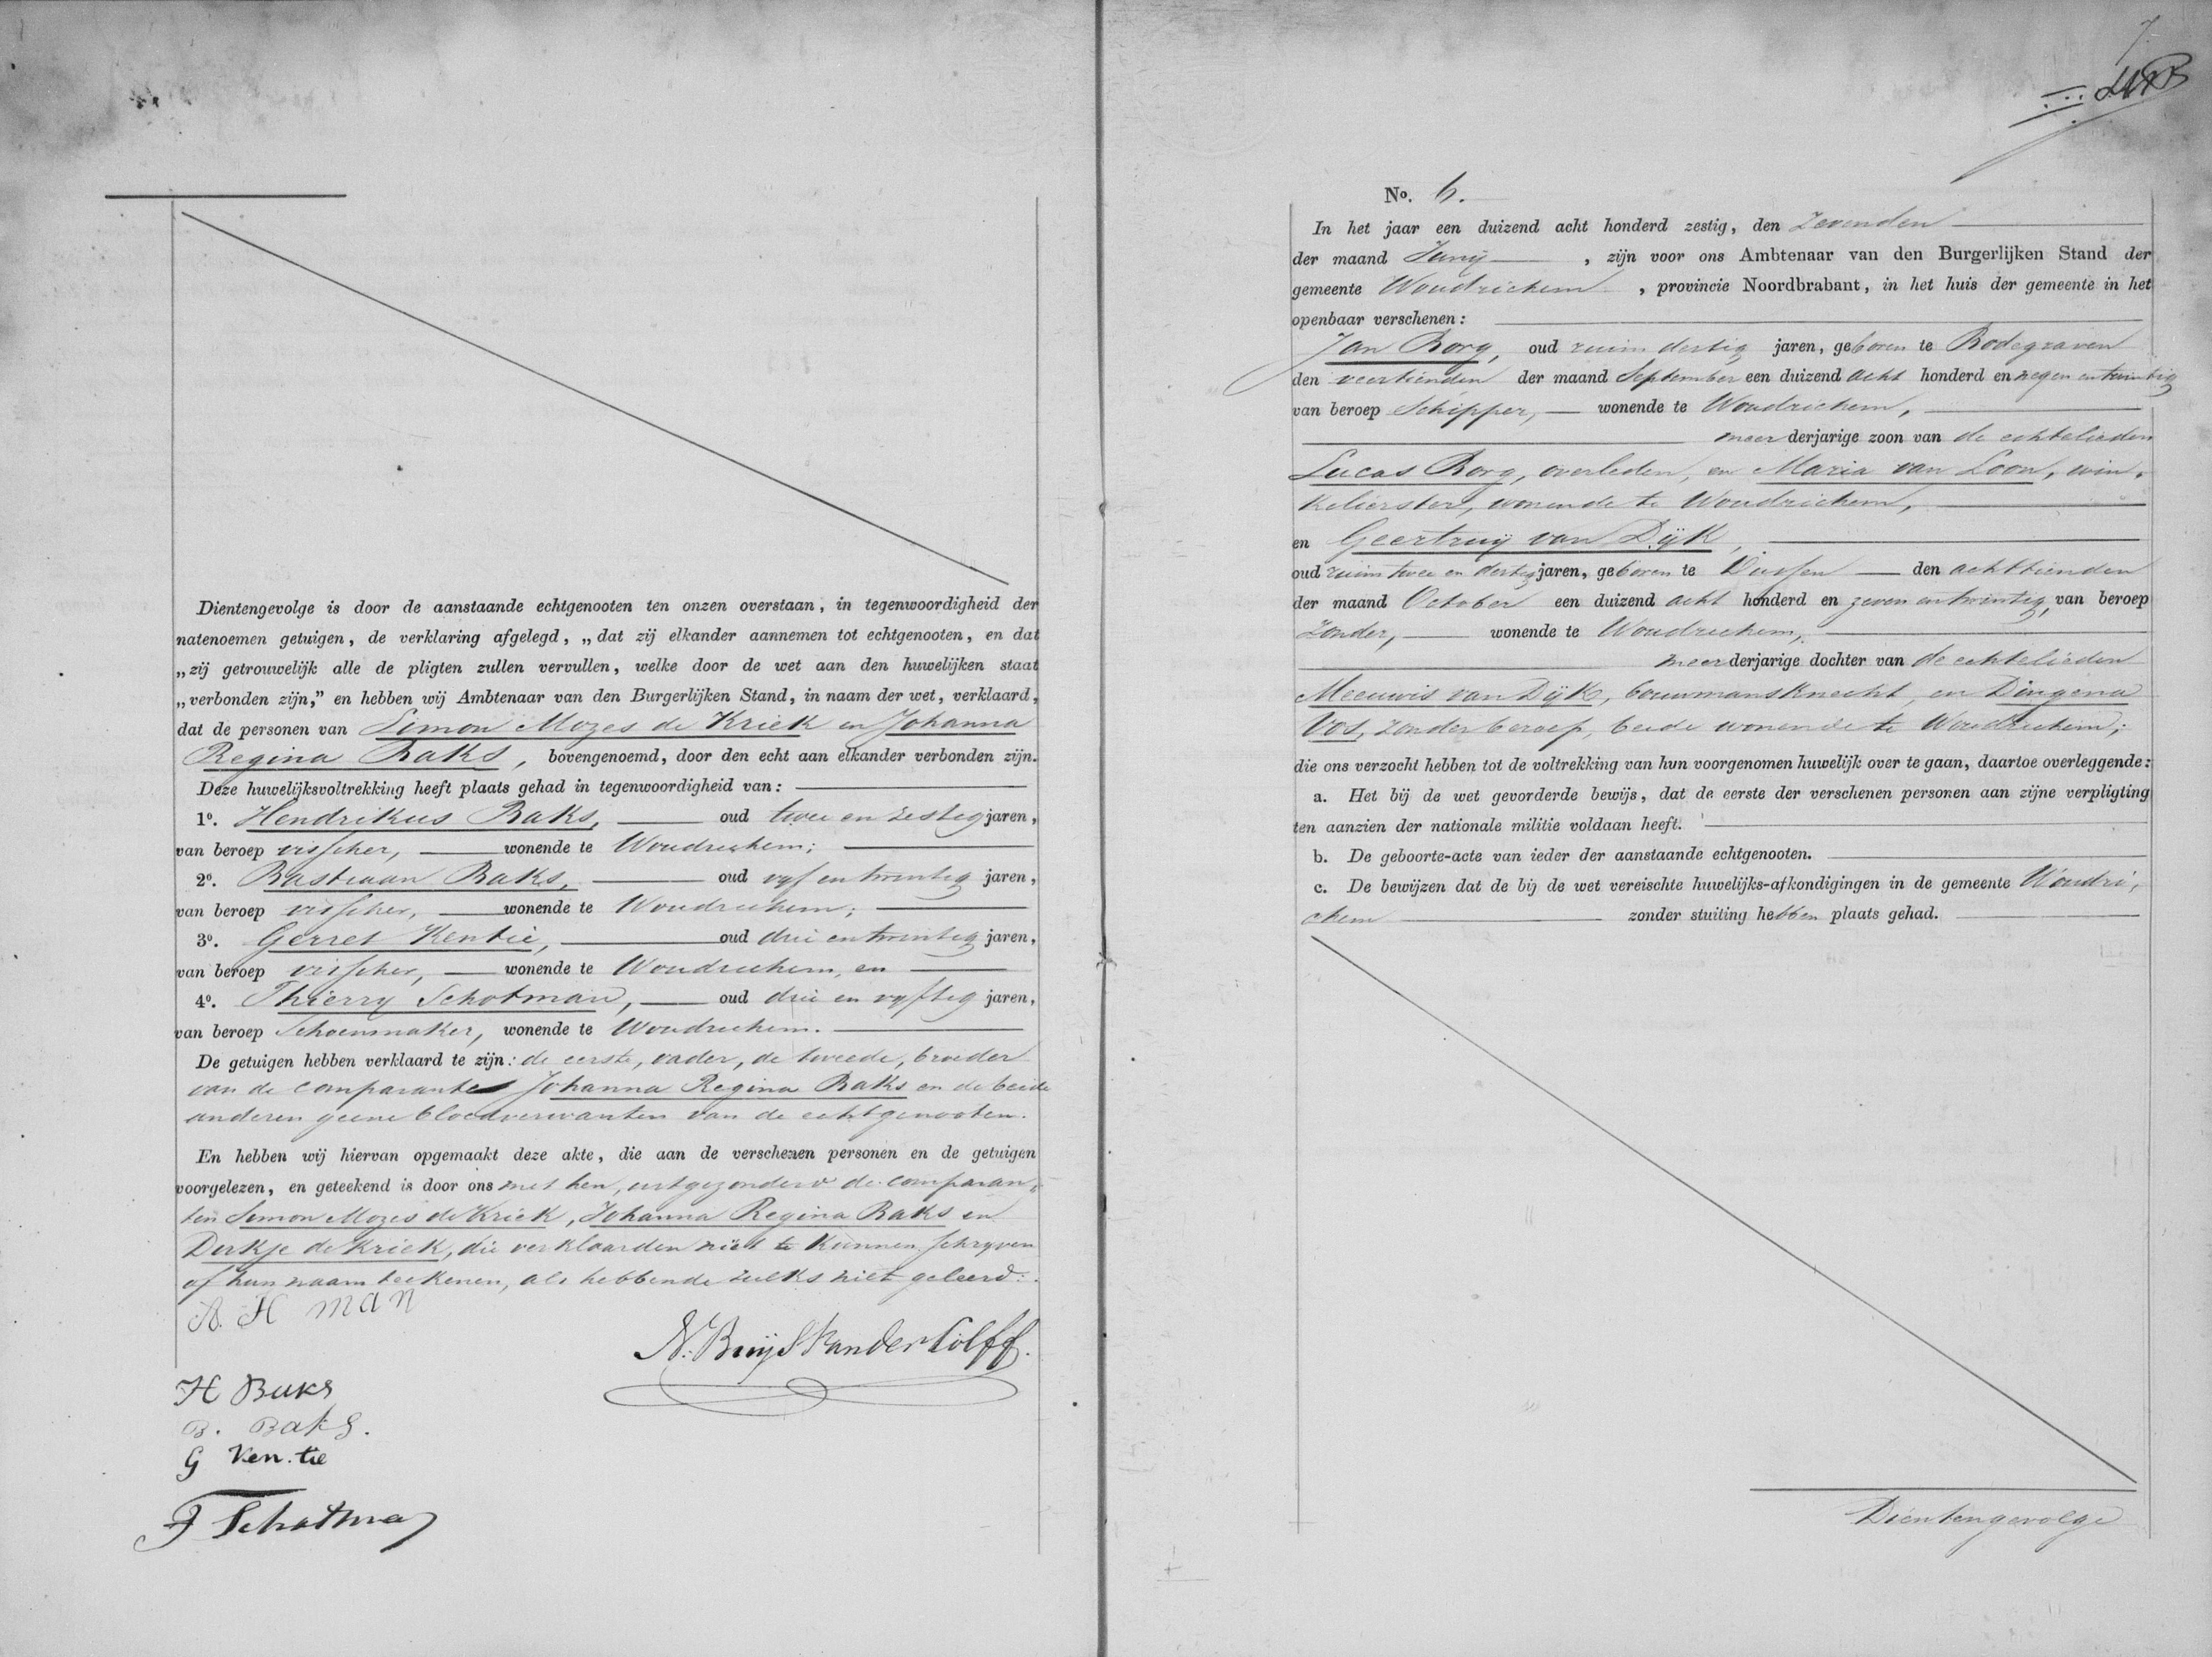 Dientengevolge is door de aanstaande echtgenooten ten onzen overstaan, in tegenwoordigheid der
natenoemen getuigen, de verklaring afgelegd, „dat zij elkander aannemen tot echtgenooten, en dat
„zij getrouwelijk alle de pligten zullen vervullen, welke door de wet aan den huwelijken staat
„verbonden zijn,” en hebben wij Ambtenaar van den Burgerlijken Stand, in naam der wet, verklaard,
dat de personen van Simon Mozes de Kriek en Johanna
Regina Baks, bovengenoemd, door den echt aan elkander verbonden zijn.
Deze huwelijksvoltrekking heeft plaats gehad in tegenwoordigheid van:
1o. Hendrikus Baks, oud twee en zestig jaren,
van beroep visscher, wonende te Woudrichem;
2o. Bastiaan Baks, oud vyf en twintig jaren,
van beroep visscher, wonende te Woudrichem;
3o. Gerret Kentie, oud drie en twintig jaren,
van beroep visscher, wonende te Woudrichem, en
4o. Thierry Schotman, oud drie en vyftig jaren,
van beroep Schoenmaker, wonende te Woudrichem.
De getuigen hebben verklaard te zijn: de eerste, vader, de tweede, broeder
van de comparante Johanna Regina Baks en de beide
anderen geene bloedverwanten van de echtgenooten.
En hebben wij hiervan opgemaakt deze akte, die aan de verschenen personen en de getuigen
voorgelezen, en geteekend is door ons met hen, uitgezonderd de comparan„
ten Simon Mozes de Kriek, Johanna Regina Baks en
Dirkje de Kriek, die verklaarden niet te kunnen schryven
of hun naam teekenen, als hebbende zulks niet geleerd.
A. H man
N. Buijs van der Colff.
H Baks
B. Baks.
G Ken.tie
T Schotman
No. 6.
In het jaar een duizend acht honderd zestig, den zevenden
der maand Junij, zijn voor ons Ambtenaar van den Burgerlijken Stand der
gemeente Woudrichem, provincie Noordbrabant, in het huis der gemeente in het
openbaar verschenen:
Jan Borg, oud ruim dertig jaren, geboren te Bodegraven
den veertienden der maand September een duizend acht honderd en negen en twintig
van beroep Schipper, wonende te Woudrichem,
meerderjarige zoon van de echtelieden
Lucas Borg, overleden, en Maria van Loon, win„
kelierster, wonende te Woudrichem,
en Geertruij van Dijk,
oud ruim twee en dertig jaren, geboren te Dussen den achttienden
der maand October een duizend acht honderd en zeven en twintig, van beroep
zonder, wonende te Woudrichem,
meerderjarige dochter van de echtelieden
Meeuwis van Dijk, bouwmansknecht, en Dingena
Vos, zonder beroep, beide wonende te Woudrichem;
die ons verzocht hebben tot de voltrekking van hun voorgenomen huwelijk over te gaan, daartoe overleggende:
a. Het bij de wet gevorderde bewijs, dat de eerste der verschenen personen aan zijne verpligting
ten aanzien der nationale militie voldaan heeft.
b. De geboorte-acte van ieder der aanstaande echtgenooten.
c. De bewijzen dat de bij de wet vereischte huwelijks-afkondigingen in de gemeente Woudri„
chem zonder stuiting hebben plaats gehad.
Dientengevolge